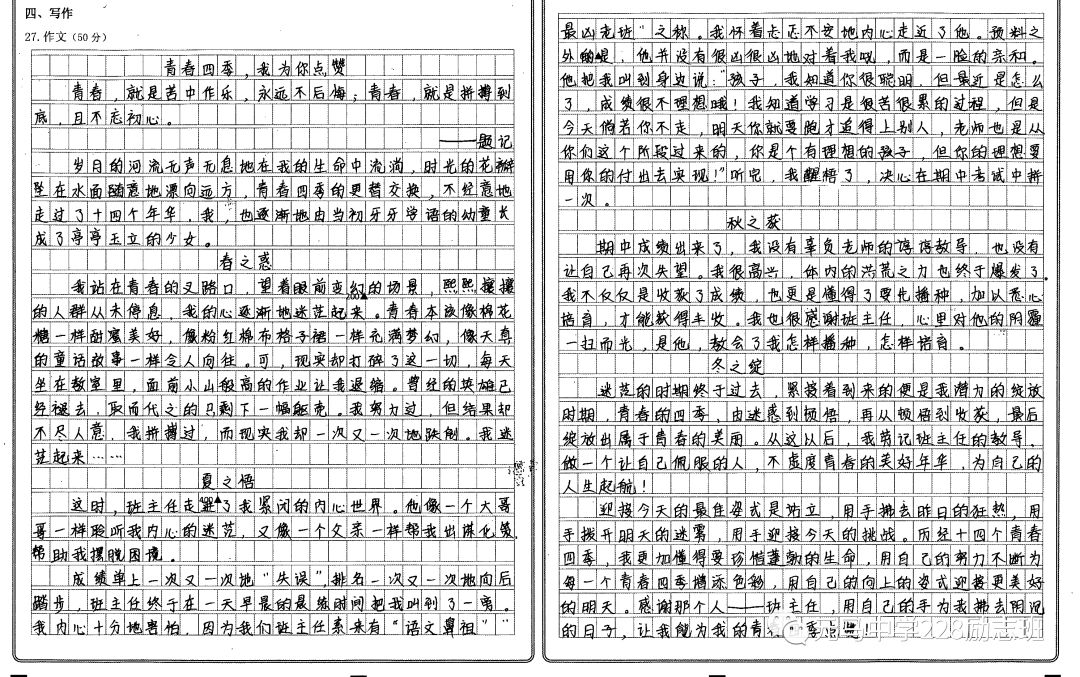 四、写作
27.作文（50分）
青春四季，我为你点赞
青春，就是苦中作乐，永远不后悔；青春，就是拼搏到
底，且不忘初心。
——题记
岁月的河流无声无息地在我的生命中流淌，时光的花瓣
坠在水面随意地漂向远方，青春四季的更替交换，不经意地
走过了十四个年华，我，也逐渐地由当初牙牙学语的幼童长
成了亭亭玉立的少女。
春之惑
我站在青春的叉路口，望着眼前变幻的场景，熙熙攘攘
200▲
的人群从未停息，我的心逐渐地迷茫起来。青春本该像棉花
糖一样甜蜜美好，像粉红棉布格子裙一样充满梦幻，像天真
的童话故事一样令人向往。可，现实却打碎了这一切，每天
坐在教室里，面前小山般高的作业让我退缩。曾经的英雄已
经褪去，取而代之的只剩下一幅躯壳。我努力过，但结果却
不尽人意，我拼搏过，而现实我却一次又一次地跌倒。我迷
茫起来……
夏之悟
这时，班主任走进了我紧闭的内心世界。他像一个大哥
400▲
哥一样聆听我内心的迷茫，又像一个父亲一样帮我出谋化策
帮助我摆脱困境。
成绩单上一次又一次地“失误”，排名一次又一次地向后
踏步，班主任终于在一天早晨的最练时间把我叫到了一离。
我内心十分地害怕，因为我们班主任素来有“语文鼻祖”“
最凶老班”之称。我怀着忐忑不安地内心走近了他。预料之
外的是，他并没有很凶很凶地对着我吼，而是一脸的亲和。
他把我叫到身边说：“孩子，我知道你很聪明，但最近是怎么
了，成绩很不理想哦！我知道学习是很苦很累的过程，但是
今天倘若你不走，明天你就要跑才追得上别人，老师也是从
你们这个阶段过来的，你是个有理想的孩子，但你的理想要
用你的付出去实现！”听完，我醒悟了，决心在期中考试中拼
一次。
秋之获
期中成绩出来了，我没有辜负老师的谆谆教导，也没有
让自己再次失望。我很高兴，体内的洪荒之力也终于爆发了。
我不仅仅是收获了成绩，也更是懂得了要先播种，加以悉心
培育，才能获得丰收。我也很感谢班主任，心里对他的阴霾
一扫而光，是他，教会了我怎样播种，怎样培育。
冬之绽
迷茫的时期终于过去，紧接着到来的便是我潜力的绽放
时期，青春的四季，由迷惑到顿悟，再从顿悟到收获，最后
绽放出属于青春的美丽。从这以后，我劳记班主任的教导，
做一个让自己佩服的人，不虚度青春的美好年华，为自己的
人生起航！
迎接今天的最佳姿式是站立，用手拂去昨日的狂热，用
手拨开明天的迷雾，用手迎接今天的挑战。历经十四个青春
四季，我更加懂得要珍惜蓬勃的生命，用自己的努力不断为
每一个青春四季增添色彩，用自己的向上的姿式迎接更美好
的明天。感谢那个人——班主任，用自己的手为我拂去阴沉
的日子，让我能为我的青春四季点赞！
中学228励志班